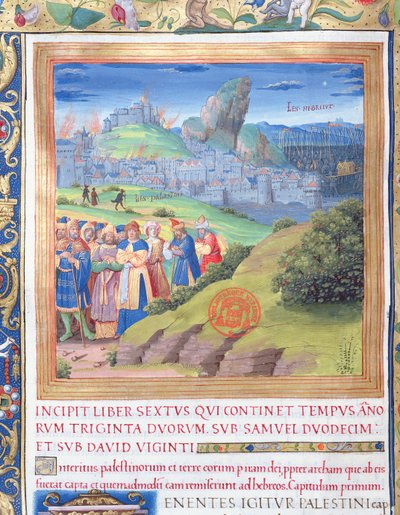 LES HEBRIEUX
LES PALESTINS
INCIPIT LIBER SEXTUS QUI CONTINET TEMPUS ANO
RUM TRIGINTA DUORUM. SUB SAMUEL DUODECIM.
ET SUB DAVID VIGINTI
Interitus palestinorum et terre eorum p iram dei, ppter archam que ab eis
fuerat capta et quemadmodū eam remiserunt ad hebreos. Capitulum primum.
ENENTES IGITUR PALESTINI cap